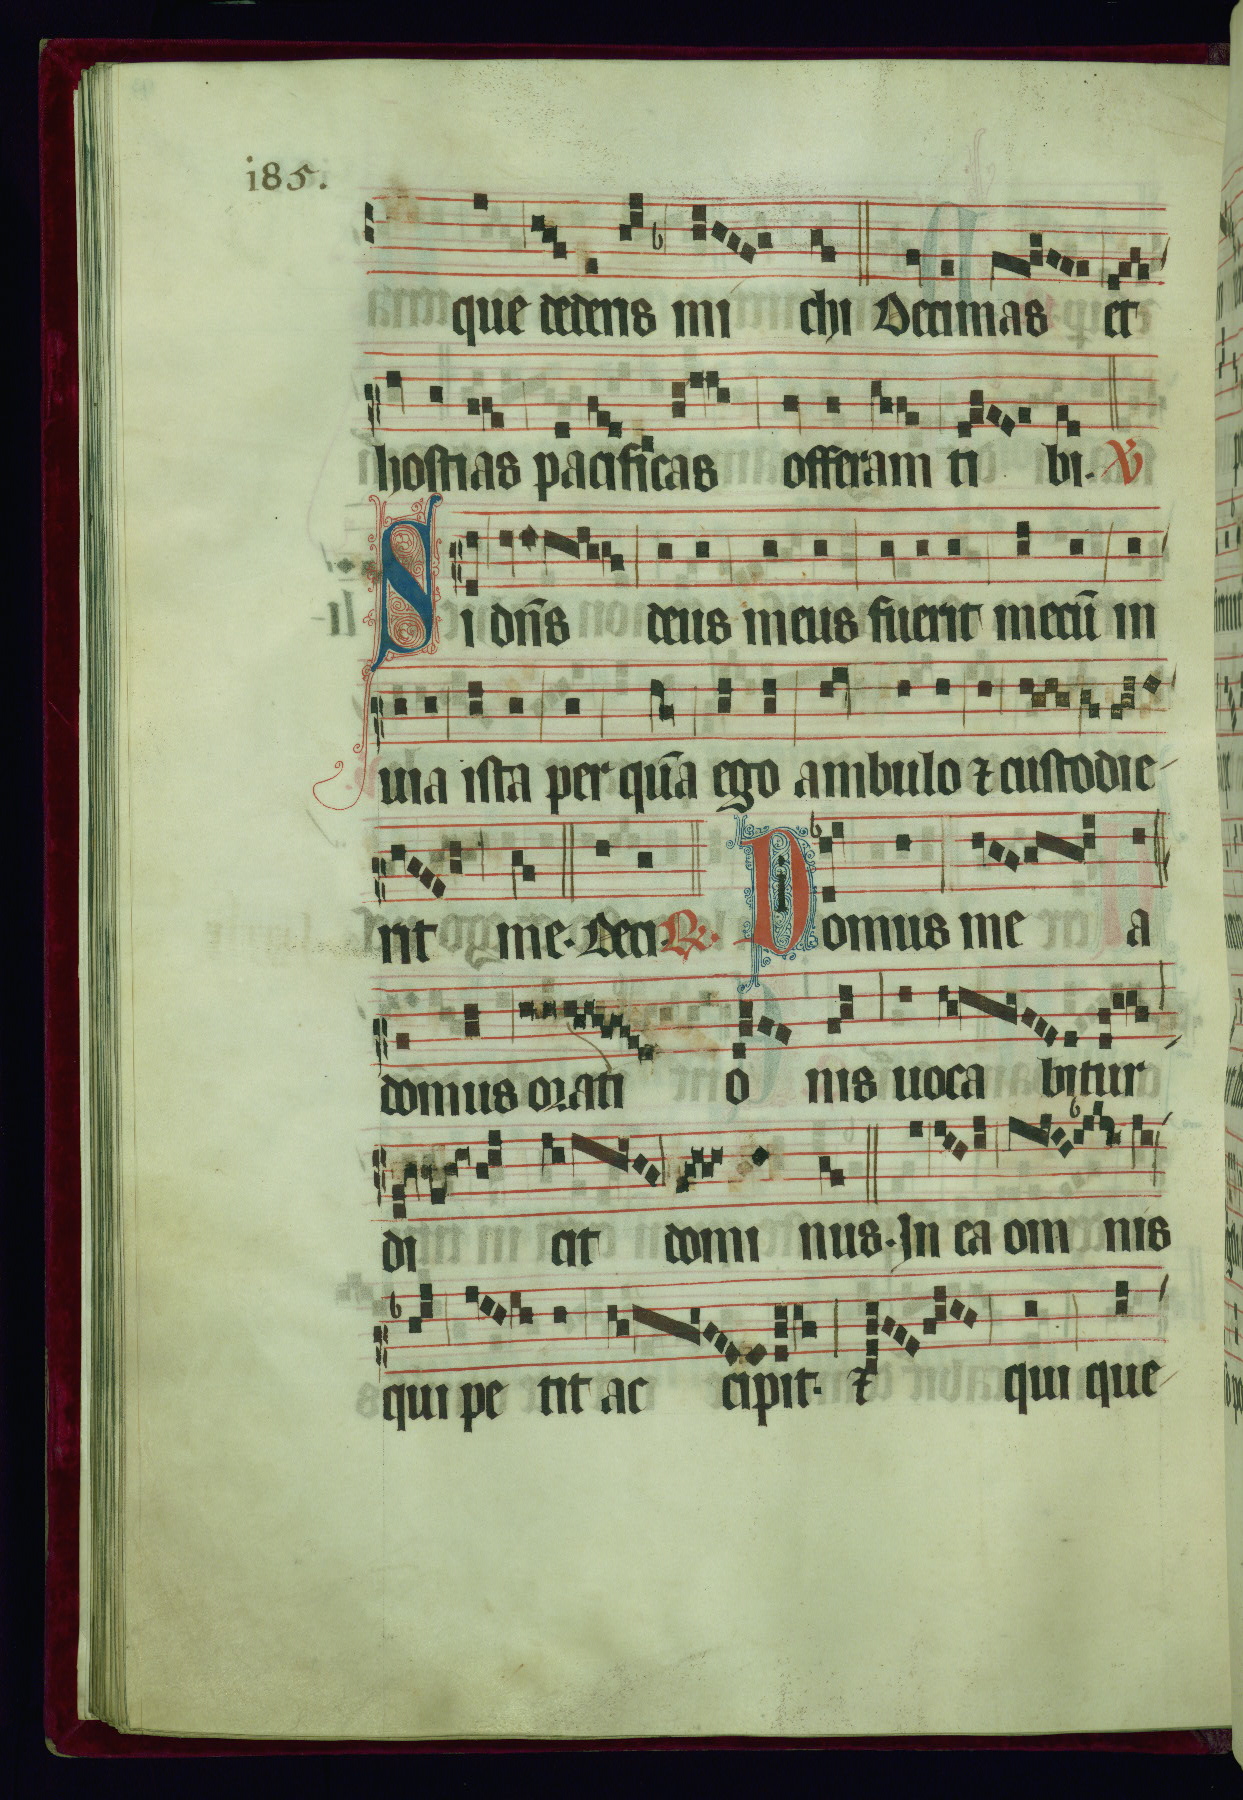 i85.
que dederis mi chi Decimas et
hostias pacificas offeram ti bi. V
Si dn̄s deus meus fuerit mecū in
uia ista per quā ego ambulo ⁊ custodie-
rit me. Deci. R. Domus me a
domus orati o nis uoca bitur
di cit domi nus. In ea om nis
qui pe tit ac cipit. ⁊ qui que-